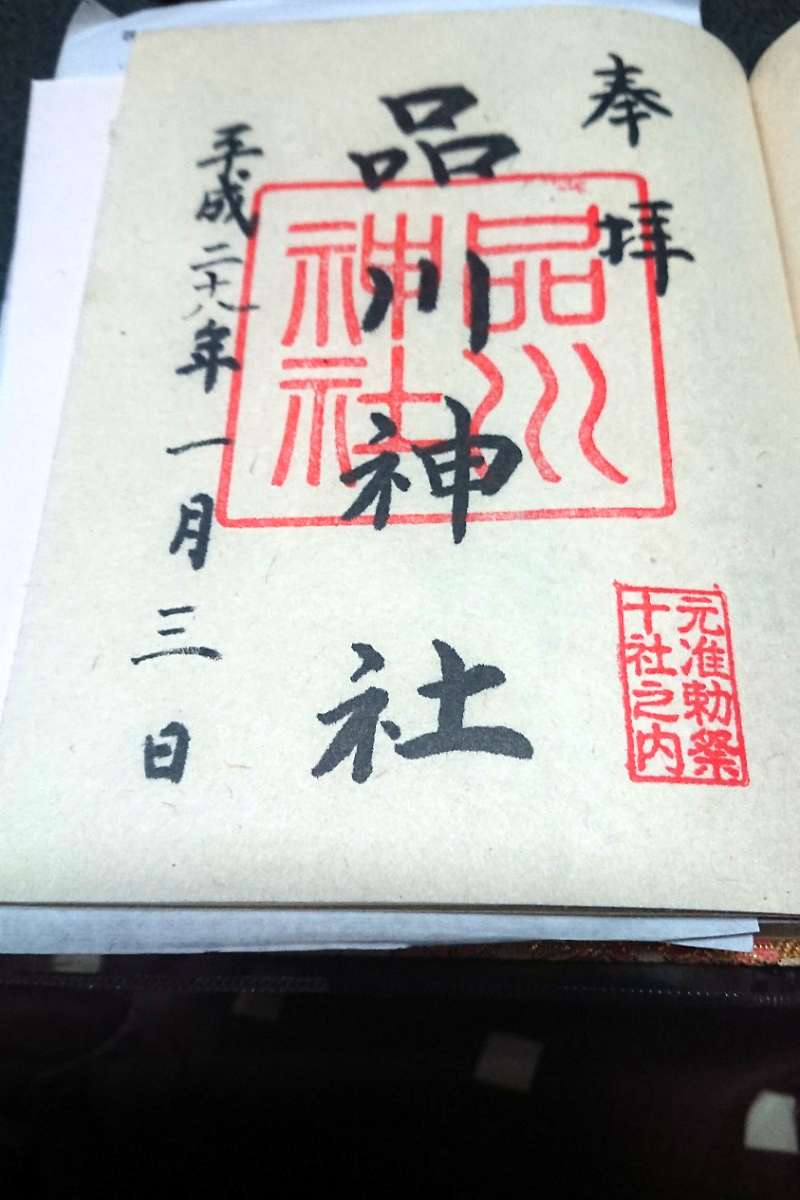 奉拝
品川神社
平成二十八年一月三日
品川
神社
元准勅祭
十社之内